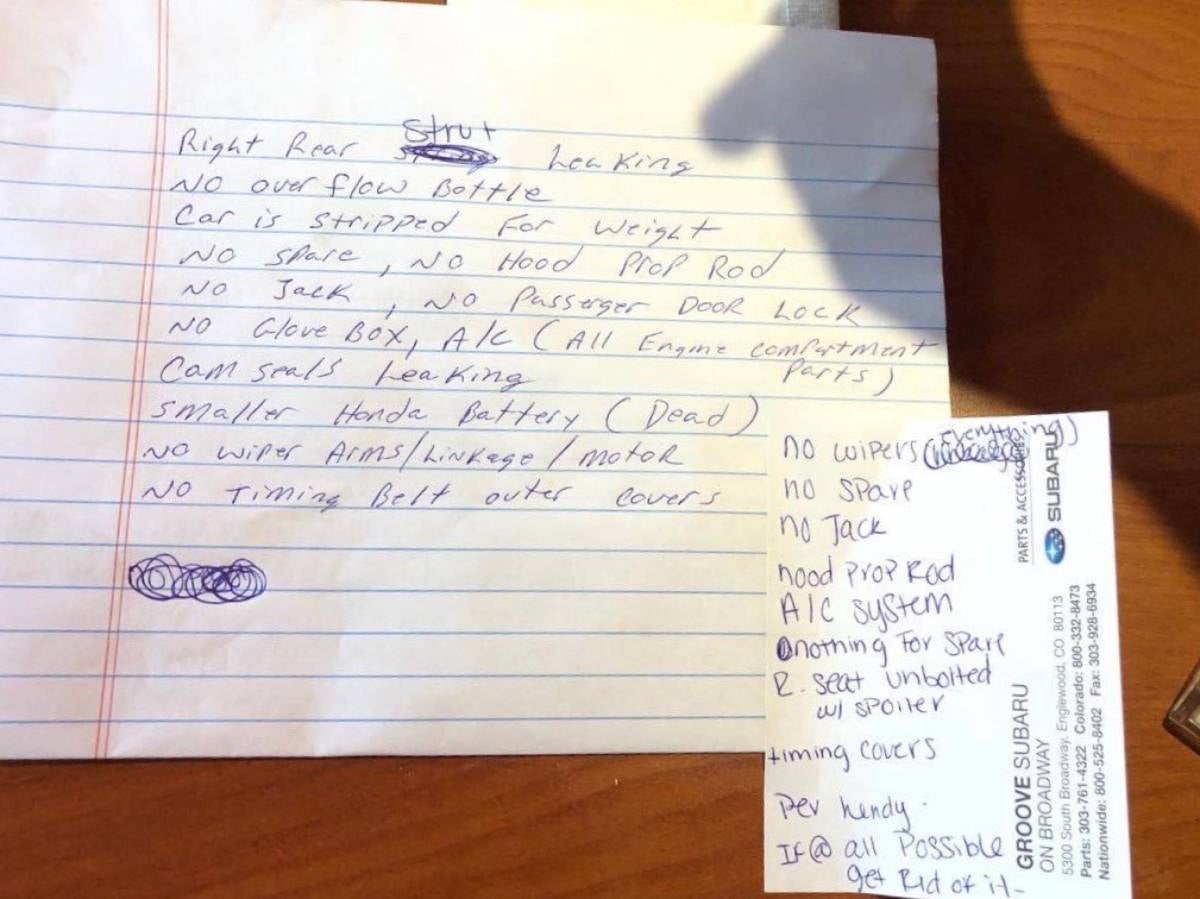 Right Rear Strut Leaking
NO over flow Bottle
Car is stripped For weight
NO spare, NO Hood Prop Rod
NO Jack, NO Passenger DOOR LOCK
NO Glove BOX, A/C (All Engine compartment
Parts)
Cam seals Leaking
smaller Honda Battery (Dead)
NO wiper Arms/Linkage/motor
NO Timing Belt outer covers
no wipers (Everything)
no spare
no Jack
hood Prop Rod
A/C system
nothing For Spare
R. seat unbolted
w/ spoiler
timing covers
Per hendy.
If @ all Possible
get Rid of it-
PARTS & ACCESSORIES
SUBARU
GROOVE SUBARU
ON BROADWAY
5300 South Broadway, Englewood, CO 80113
Parts: 303-761-4322 Colorado: 800-332-8473
Nationwide: 800-525-8402 Fax: 303-928-6934